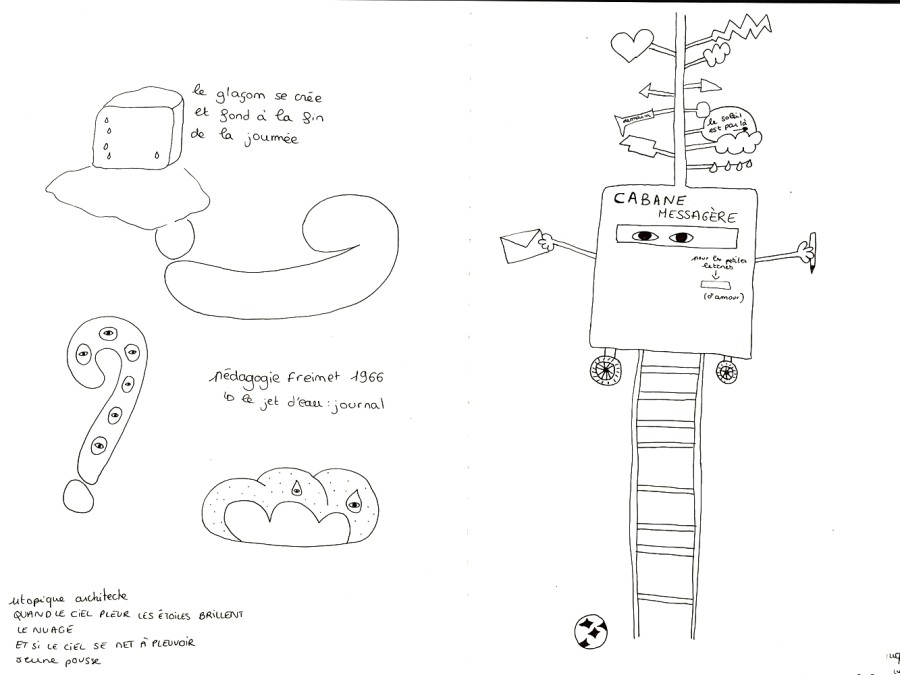 le glaçom se crée
et fond à la fin
de la journée
pédagogie freimet 1966
↳ le jet d'eau : journal
utopique architecte
QUAND LE CIEL PLEUR LES ÉTOILES BRILLENT
LE NUAGE
ET SI LE CIEL SE MET À PLEUVOIR
Jeune pousse
le soleil
est par là
CABANE
MESSAGÈRE
pour les petites
lettres
(d'amour)